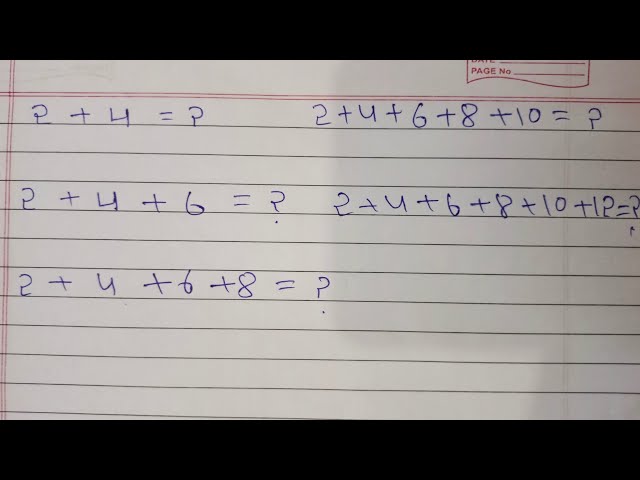 DATE
PAGE No
2 + 4 = ?
2+4+6+8+10 = ?
2 + 4 + 6 = ?
2+4+6+8+10+12=?
2 + 4 +6+8 = ?